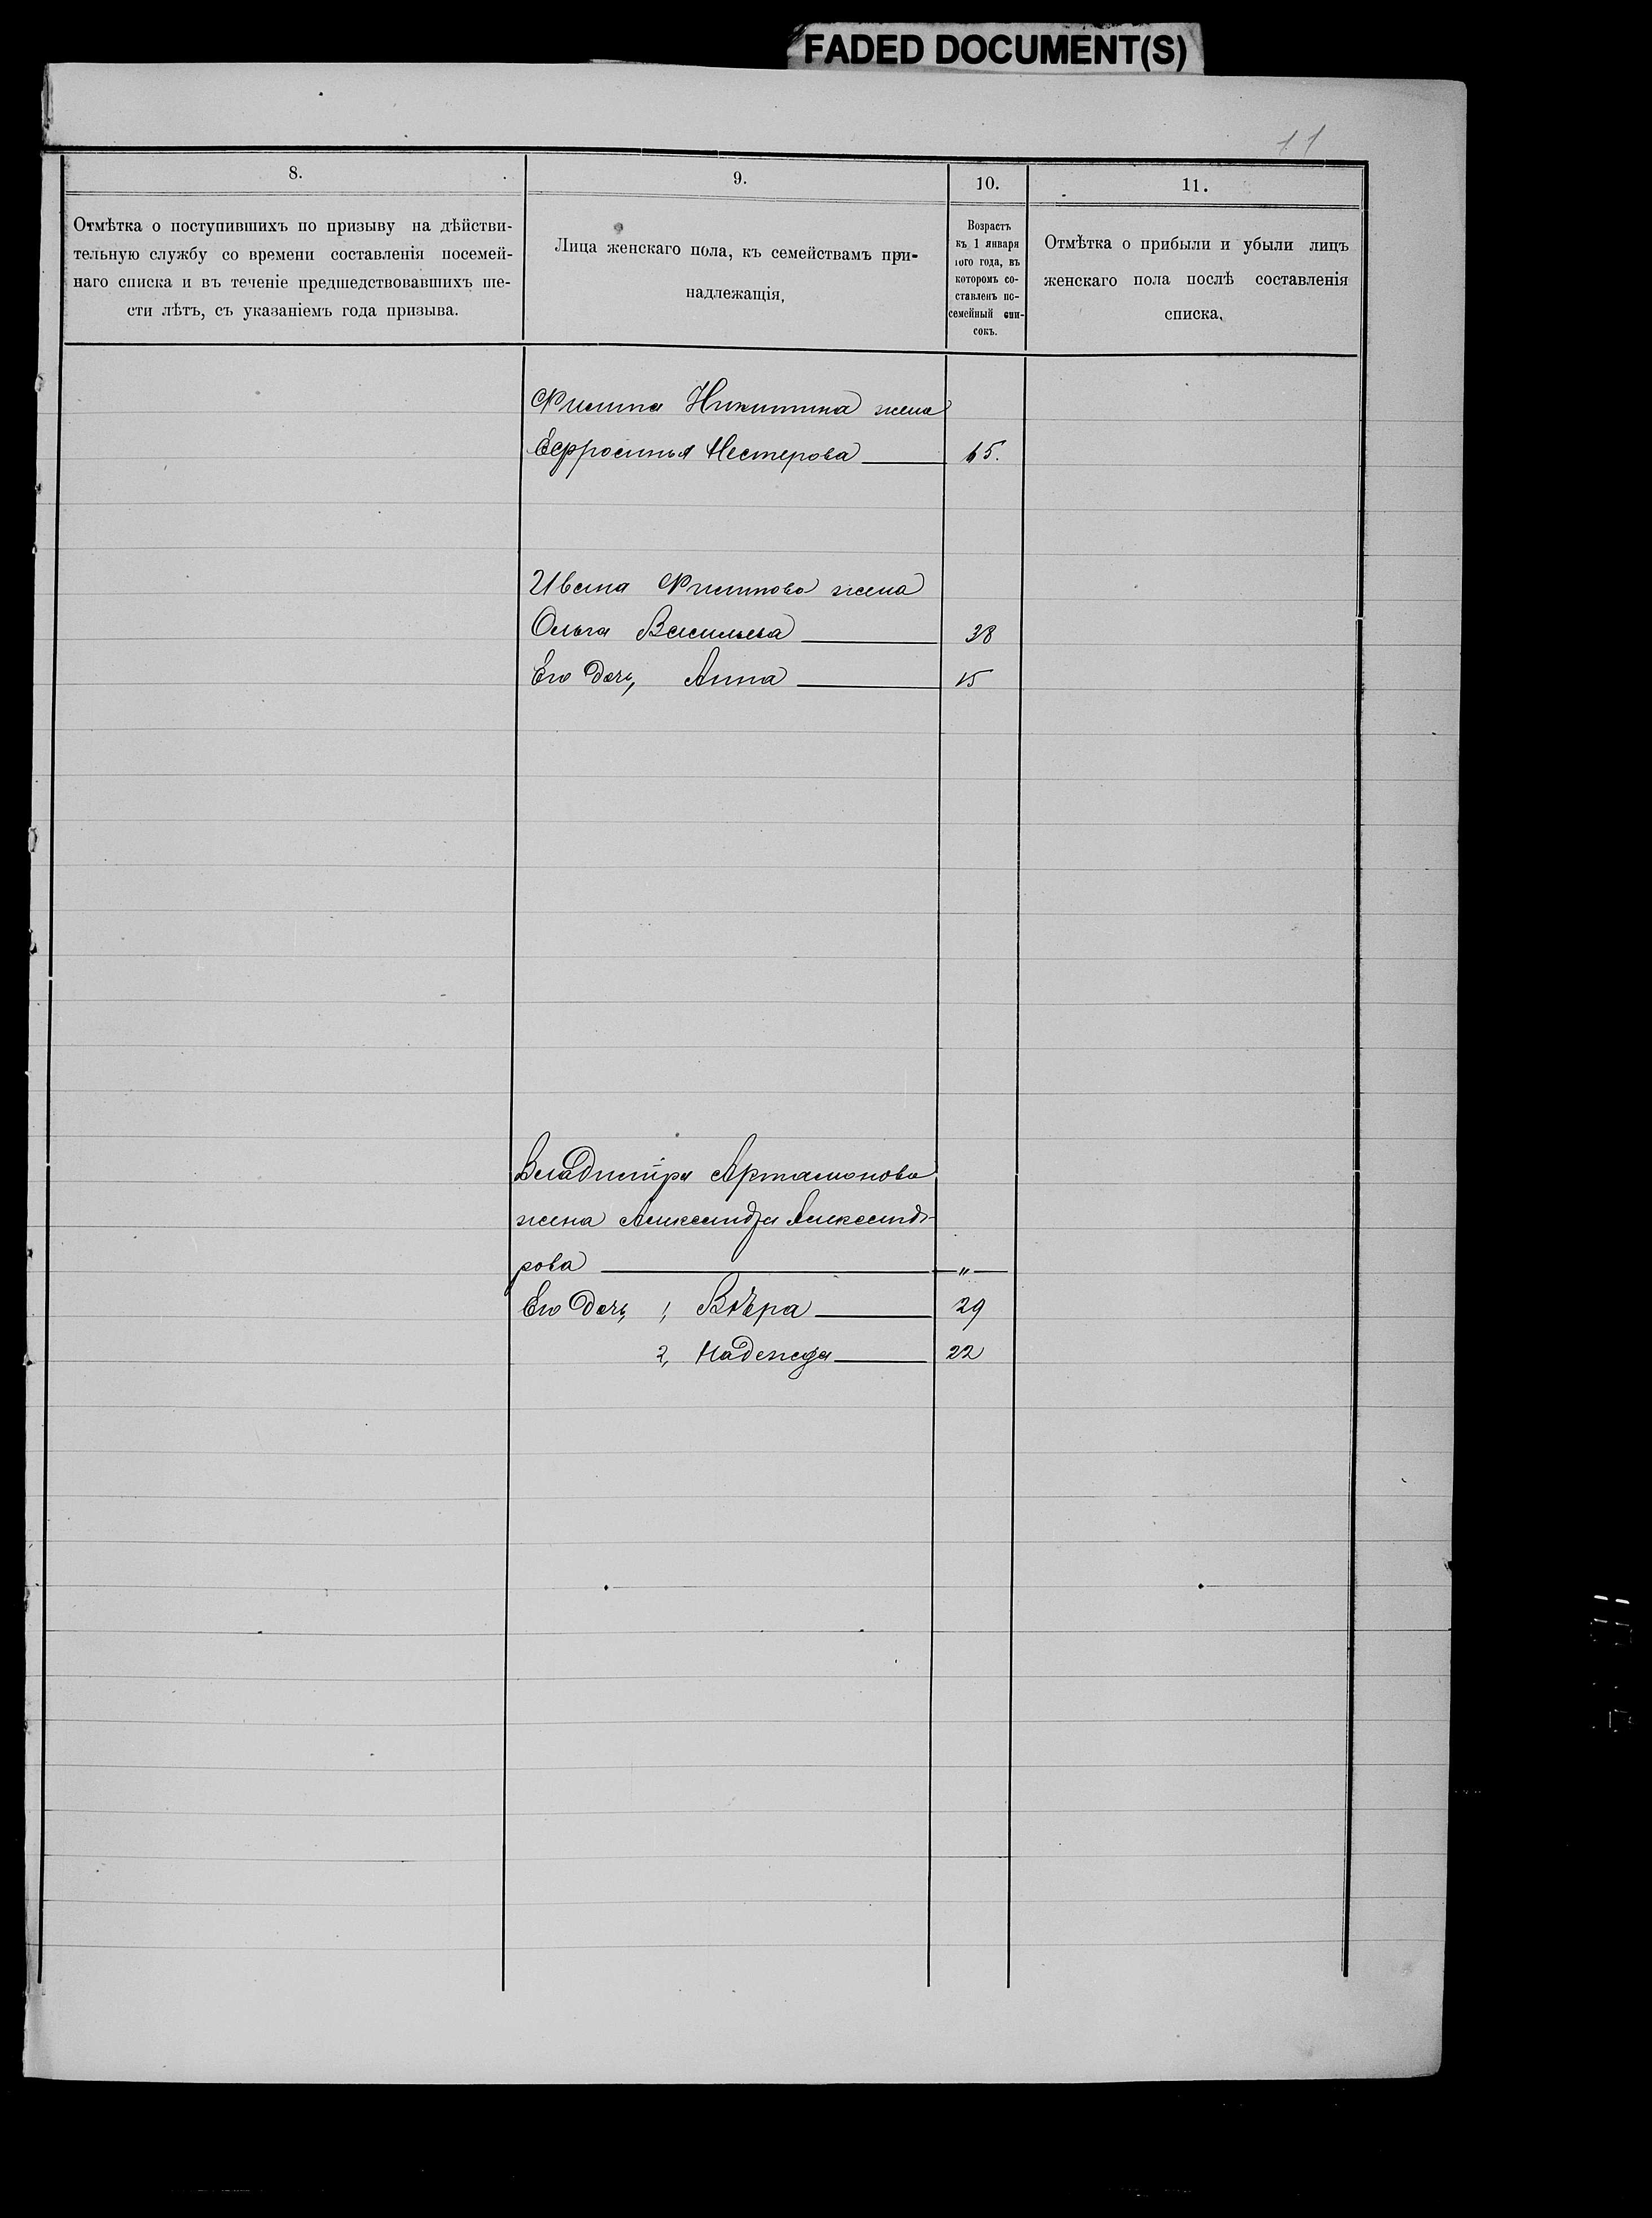 FADED DOCUMENT(S)
11
8.
9.
10.
11.
Отмѣтка о поступившихъ по призыву на дѣйстви-
тельную службу со времени составленія посемей-
наго списка и въ теченіе предшедствовавшихъ ше-
сти лѣтъ, съ указаніемъ года призыва.
Лица женскаго пола, къ семействамъ при-
надлежащія,
Возрастъ
къ 1 января
того года, въ
которомъ со-
ставленъ по-
семейный спи-
сокъ.
Отмѣтка о прибыли и убыли лицъ
женскаго пола послѣ составленія
списка,
Филипа Никитина жена
Ефросинья Нестерова 65.
Ивана Филипова жена
Ольга Васильева 38
Его дочь, Анна 15
Владиміра Артамонова
жена Александра Александ-
рова „
Его дочь, 1, Вѣра 29
2, Надежда 22